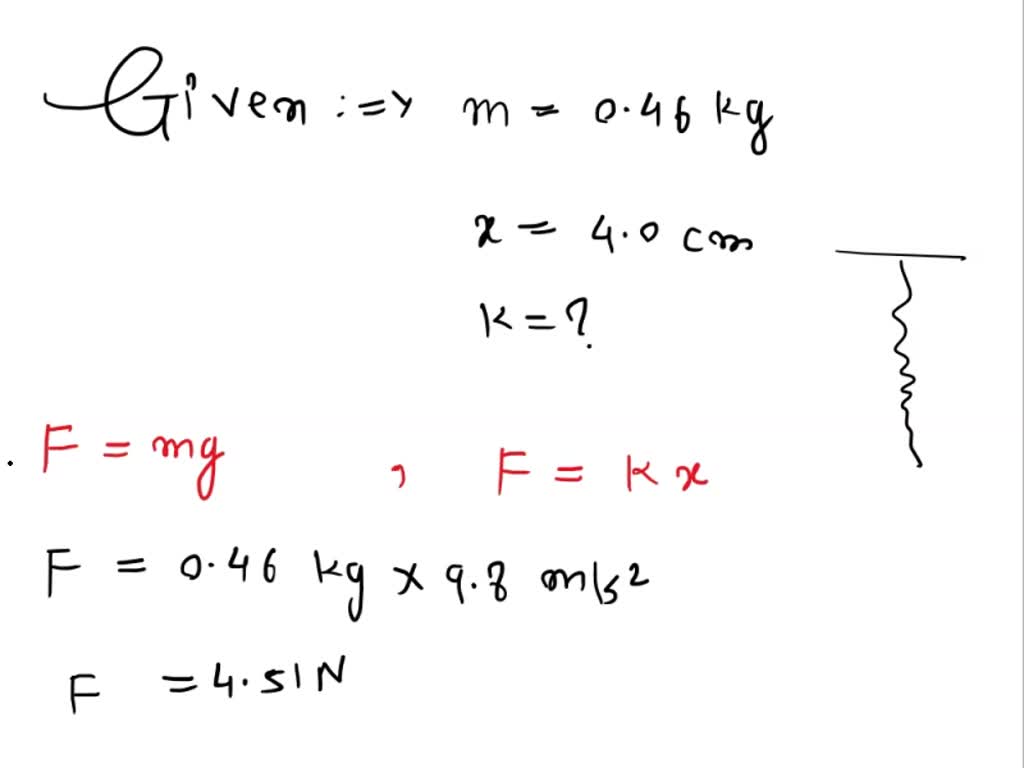 Given :=> m = 0.46 kg
x = 4.0 cm
K = ?
F = mg , F = K x
F = 0.46 kg x 9.8 m/s²
F = 4.51 N